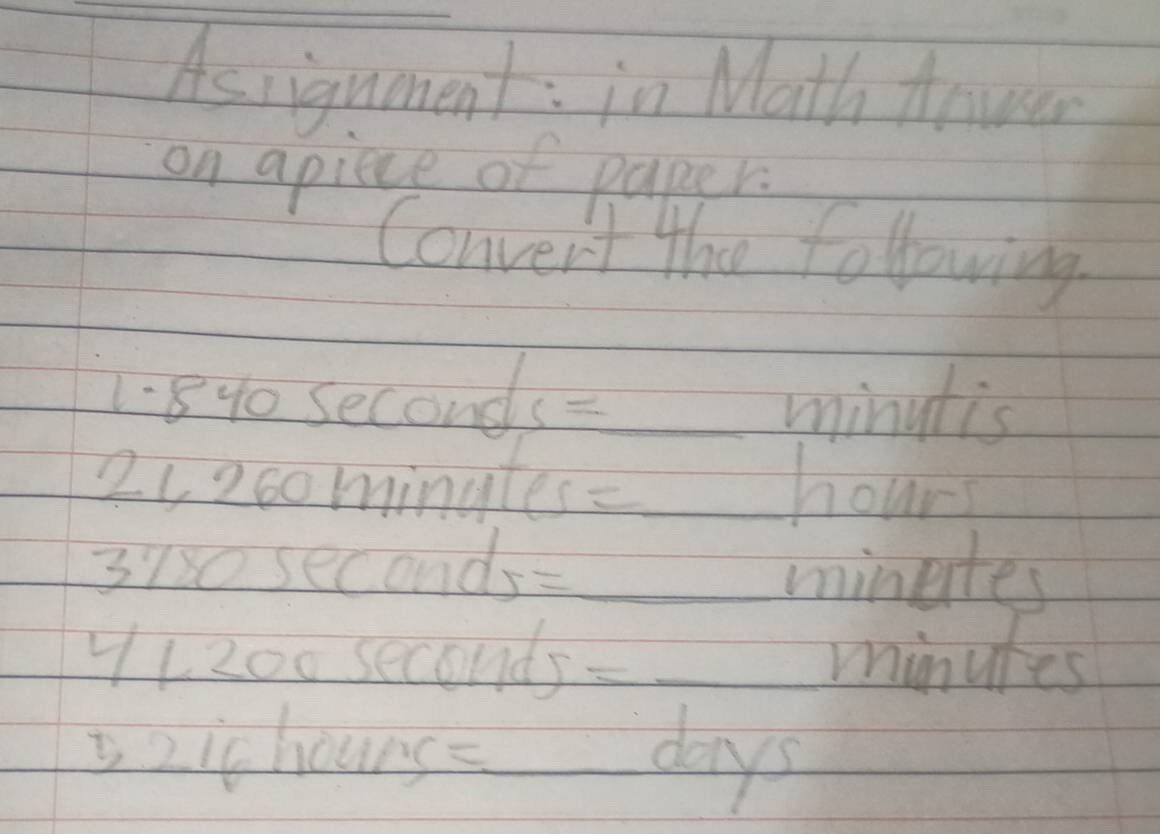 Assignment: in Math Answer
on apiece of paper.
Convert the following.
1. 840 seconds = ___ minutis
2 1,260 minutes = ___ hours
3 780 seconds = ___ minutes
4 1,200 seconds = ___ minutes
5 216 hours = ___ days